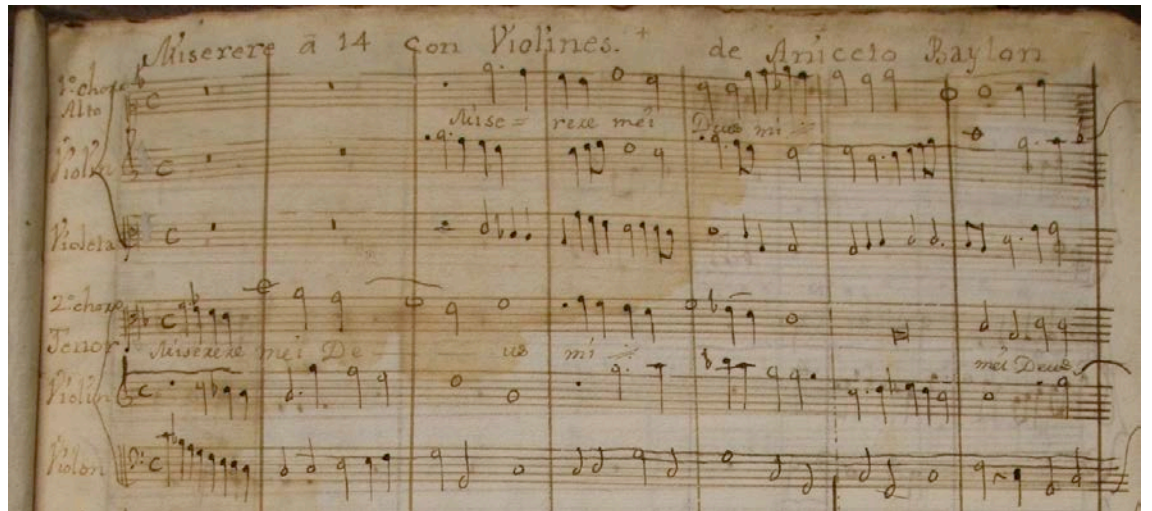 Miserere â 14 Con Violines. + de Aniceto Baylon
1º. choro
Alto
Mise = rere mei Deus mi =
Violin
Violeta
2º. choro
Tenor
Miserere mei De - - us mi = mei Deus
Violin
Violon